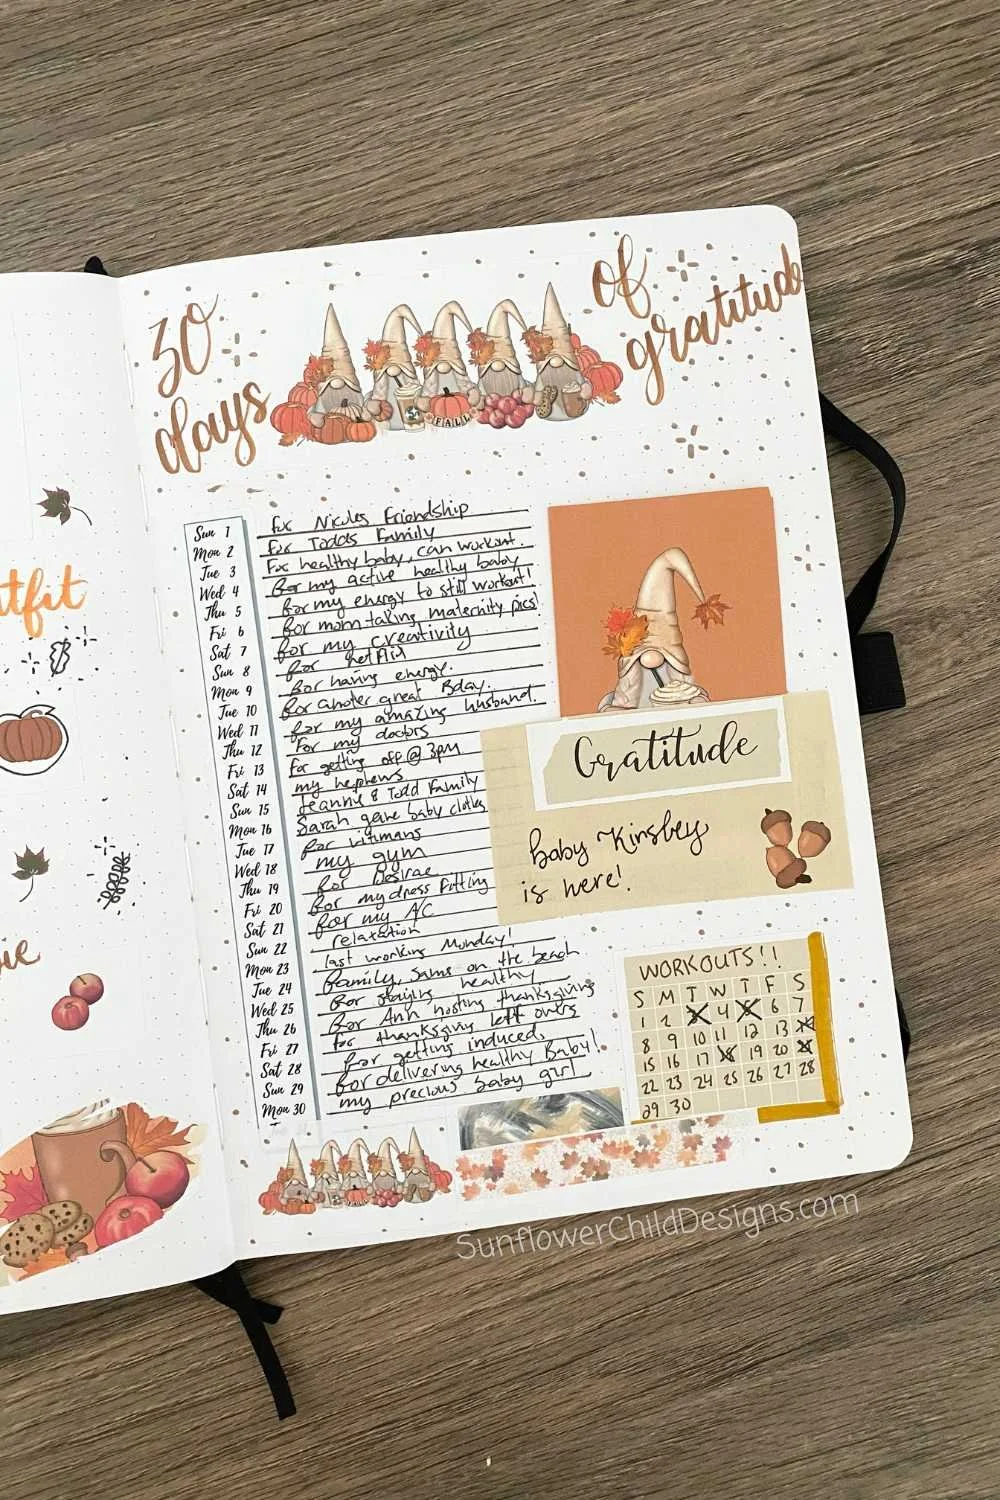 30 days
of gratitude
FALL
Sun 1 for Nicoles Friendship
Mon 2 for Todds Family
Tue 3 For healthy baby, can workout.
Wed 4 for my active healthy baby
Thu 5 for my energy to still workout!
Fri 6 for mom taking maternity pics!
Sat 7 for my creativity
Sun 8 for Netflix
Mon 9 for having energy.
Tue 10 for another great Bday.
Wed 11 for my amazing husband.
Thu 12 for my doctors
Fri 13 for getting off @ 3pm
Sat 14 my nephews
Sun 15 Jeanny & Todd Family
Mon 16 Sarah gave baby clothes
Tue 17 for
Wed 18 my gym
Thu 19 for Desirae
Fri 20 for my dress fitting
Sat 21 for my A/C
Sun 22 relaxation
Mon 23 last working Monday!
Tue 24 family, Sams on the beach
Wed 25 for staying healthy
Thu 26 for Ann hosting thanksgiving
Fri 27 for thanksgivig left overs
Sat 28 for getting induced,
Sun 29 for delivering healthy Baby!
Mon 30 my precious baby girl
Gratitude
Baby Kinsley
is here!
WORKOUTS!!
S M T W T F S
1 2 3 4 5 6 7
8 9 10 11 12 13 14
15 16 17 18 19 20 21
22 23 24 25 26 27 28
29 30
tfit
ie
SunflowerChildDesigns.com